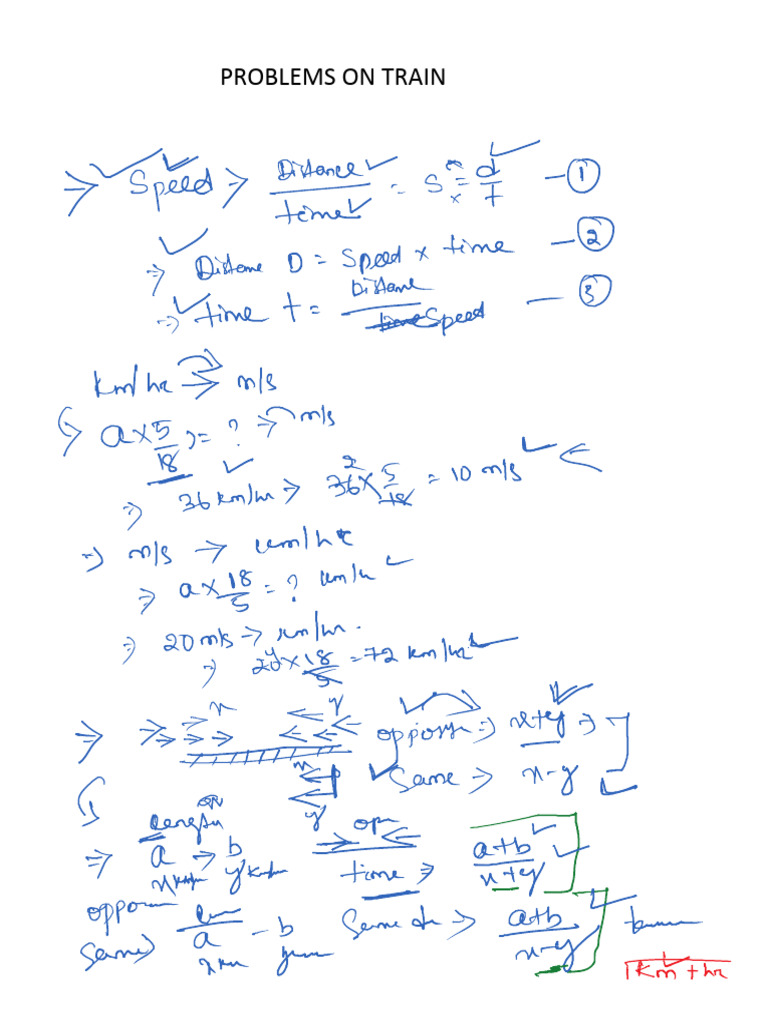 PROBLEMS ON TRAIN
⇒ Speed ⇒ Distance / time = S = d/t — ①
⇒ Distane D = Speed × time — ②
⇒ time t = Distane / Speed — ③
Km/hr → m/s
a × 5/18 = ? → m/s
⇒ 36 km/hr ⇒ 36 × 5/18 = 10 m/s
2
⇒ m/s → km/hr
⇒ a × 18/5 = ? km/h
⇒ 20 m/s → km/hr.
⇒ 20 × 18/5 = 72 km/hr
4
x y
⇒ oppose ⇒ x+y ⇒
x Same ⇒ x-y
y
Length
⇒ a → b time ⇒ a+b / x+y
x y
oppo
Same a - b Same ⇒ a+b / x-y
Km + hr